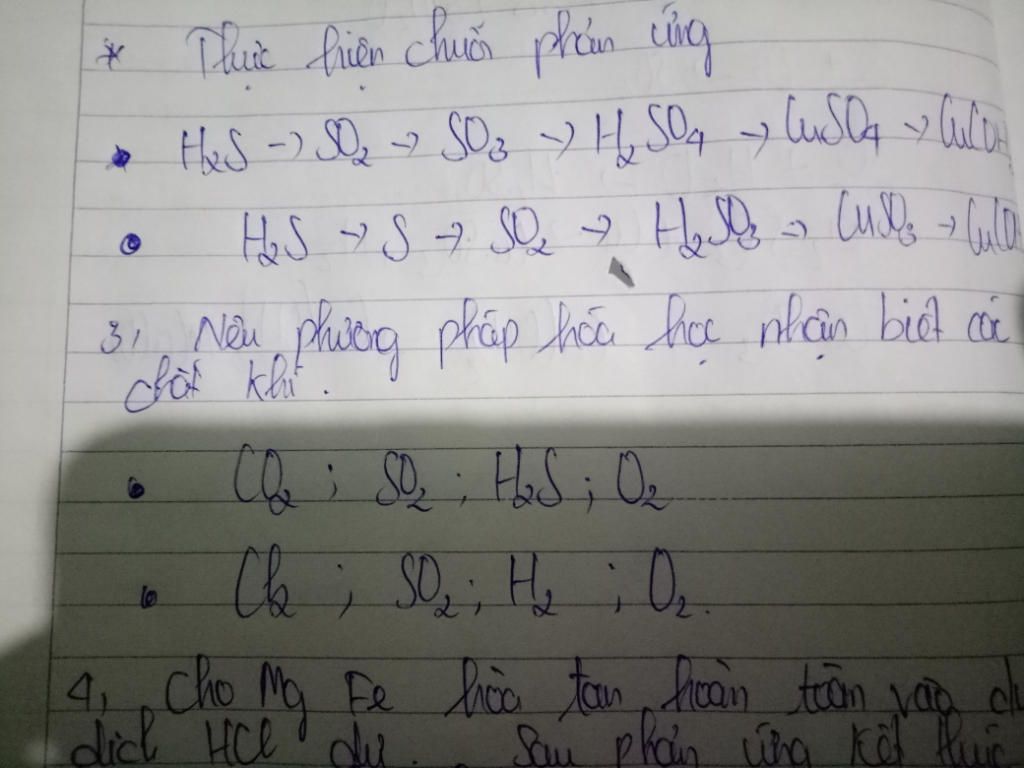 * Thực hiện chuỗi phản ứng
• H₂S → SO₂ → SO₃ → H₂SO₄ → CuSO₄ → Cu(OH
• H₂S → S → SO₂ → H₂SO₃ → CuSO₃ → Cu(O
3, Nêu phương pháp hóa học nhận biết các
chất khí.
• CO₂ ; SO₂ ; H₂S ; O₂
• Cl₂ ; SO₂ ; H₂ ; O₂.
4, Cho Mg Fe hòa tan hoàn toàn vào du
dịch HCl dư. Sau phản ứng kết thúc